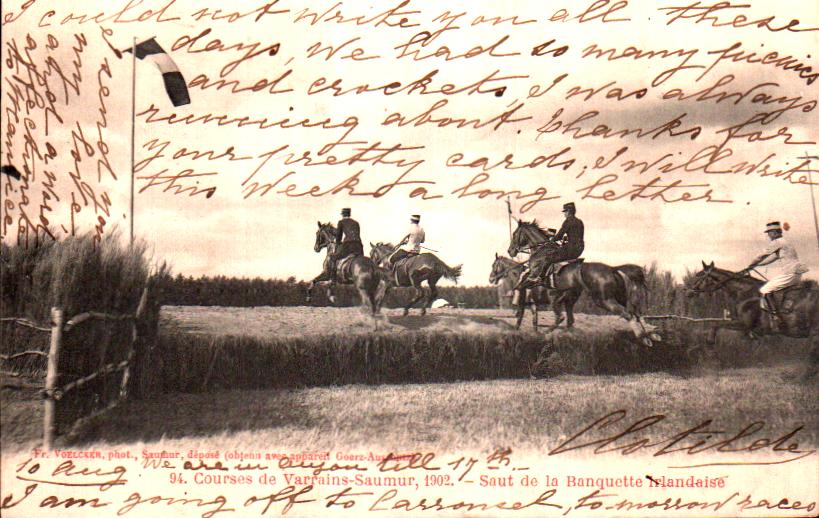 I could not write you all these
days, We had so many picnics
and crockets, I was always
running about. Thanks for
your pretty cards, I will write
this week a long letter.
I send you
my love
and a most
affectionate
to Maurice.
Clotilde
Fr. VOELCKER, phot., Saumur, déposé (obtenu avec appareil Goerz-Anschütz)
10 Aug We are in Anjou till 17th
94. Courses de Varrains-Saumur, 1902. – Saut de la Banquette Irlandaise
I am going off to Carrousel, to morrow races